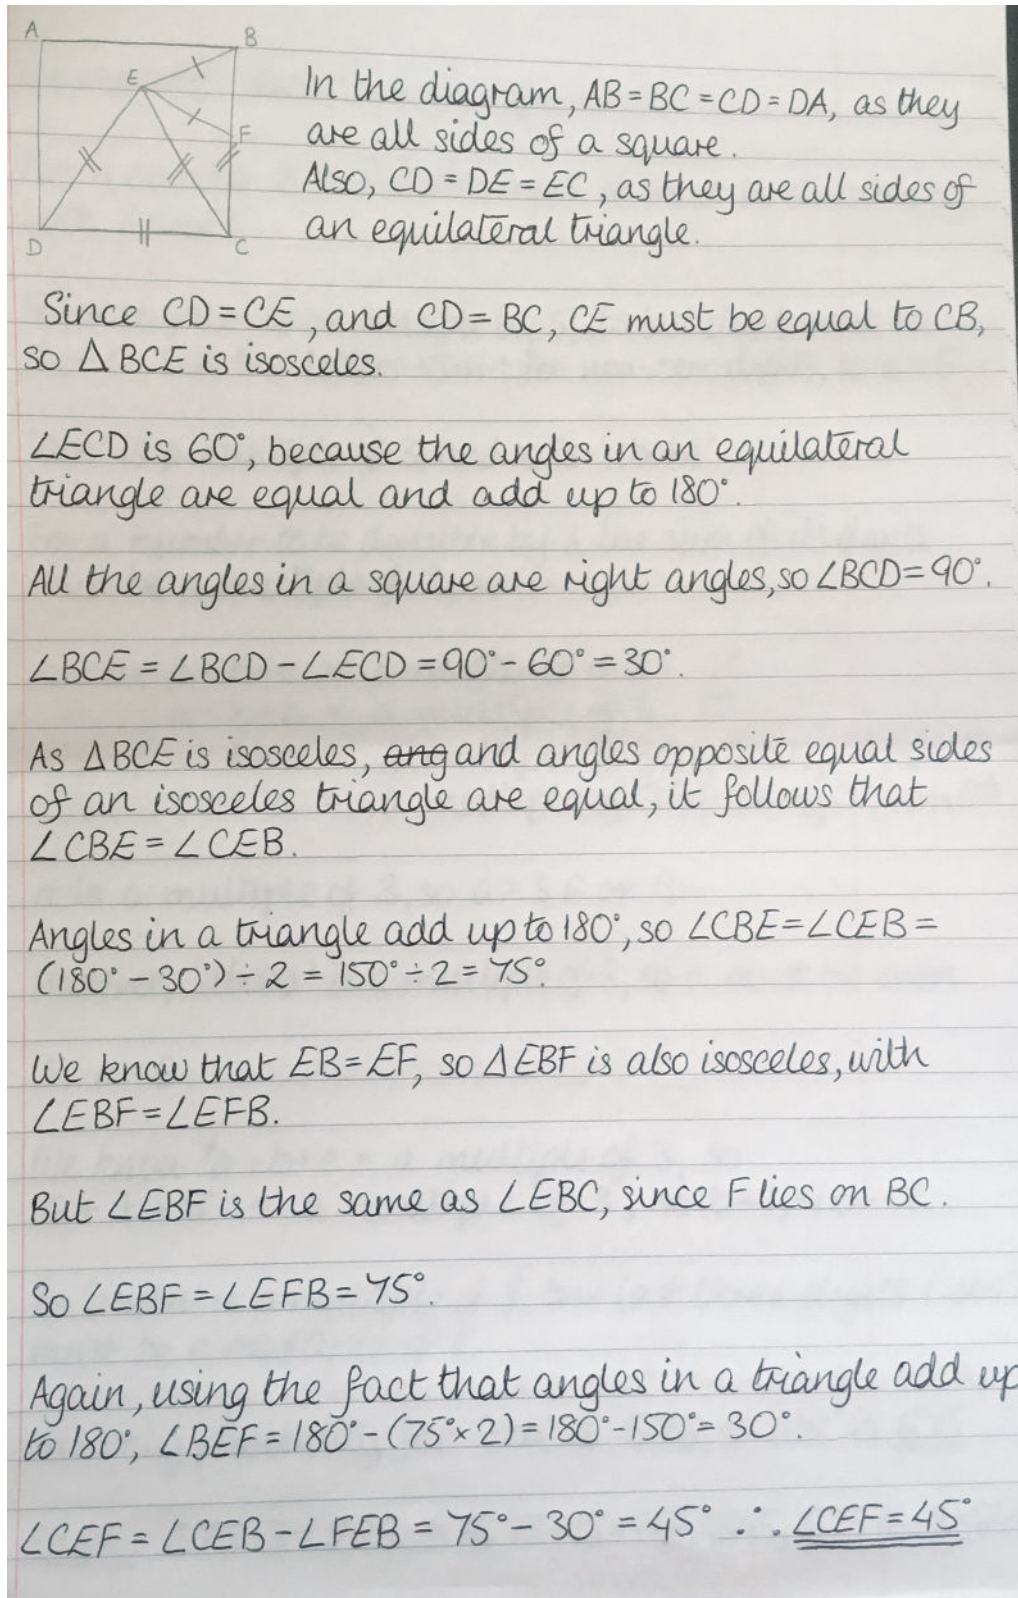 A
B
E
F
D
C
In the diagram, AB = BC = CD = DA, as they
are all sides of a square.
Also, CD = DE = EC, as they are all sides of
an equilateral triangle.
Since CD = CE, and CD = BC, CE must be equal to CB,
so △BCE is isosceles.
∠ECD is 60°, because the angles in an equilateral
triangle are equal and add up to 180°.
All the angles in a square are right angles, so ∠BCD = 90°.
∠BCE = ∠BCD - ∠ECD = 90° - 60° = 30°.
As △BCE is isosceles, ang and angles opposite equal sides
of an isosceles triangle are equal, it follows that
∠CBE = ∠CEB.
Angles in a triangle add up to 180°, so ∠CBE = ∠CEB =
(180° - 30°) ÷ 2 = 150° ÷ 2 = 75°.
We know that EB = EF, so △EBF is also isosceles, with
∠EBF = ∠EFB.
But ∠EBF is the same as ∠EBC, since F lies on BC.
So ∠EBF = ∠EFB = 75°.
Again, using the fact that angles in a triangle add up
to 180°, ∠BEF = 180° - (75° × 2) = 180° - 150° = 30°.
∠CEF = ∠CEB - ∠FEB = 75° - 30° = 45° ∴ ∠CEF = 45°